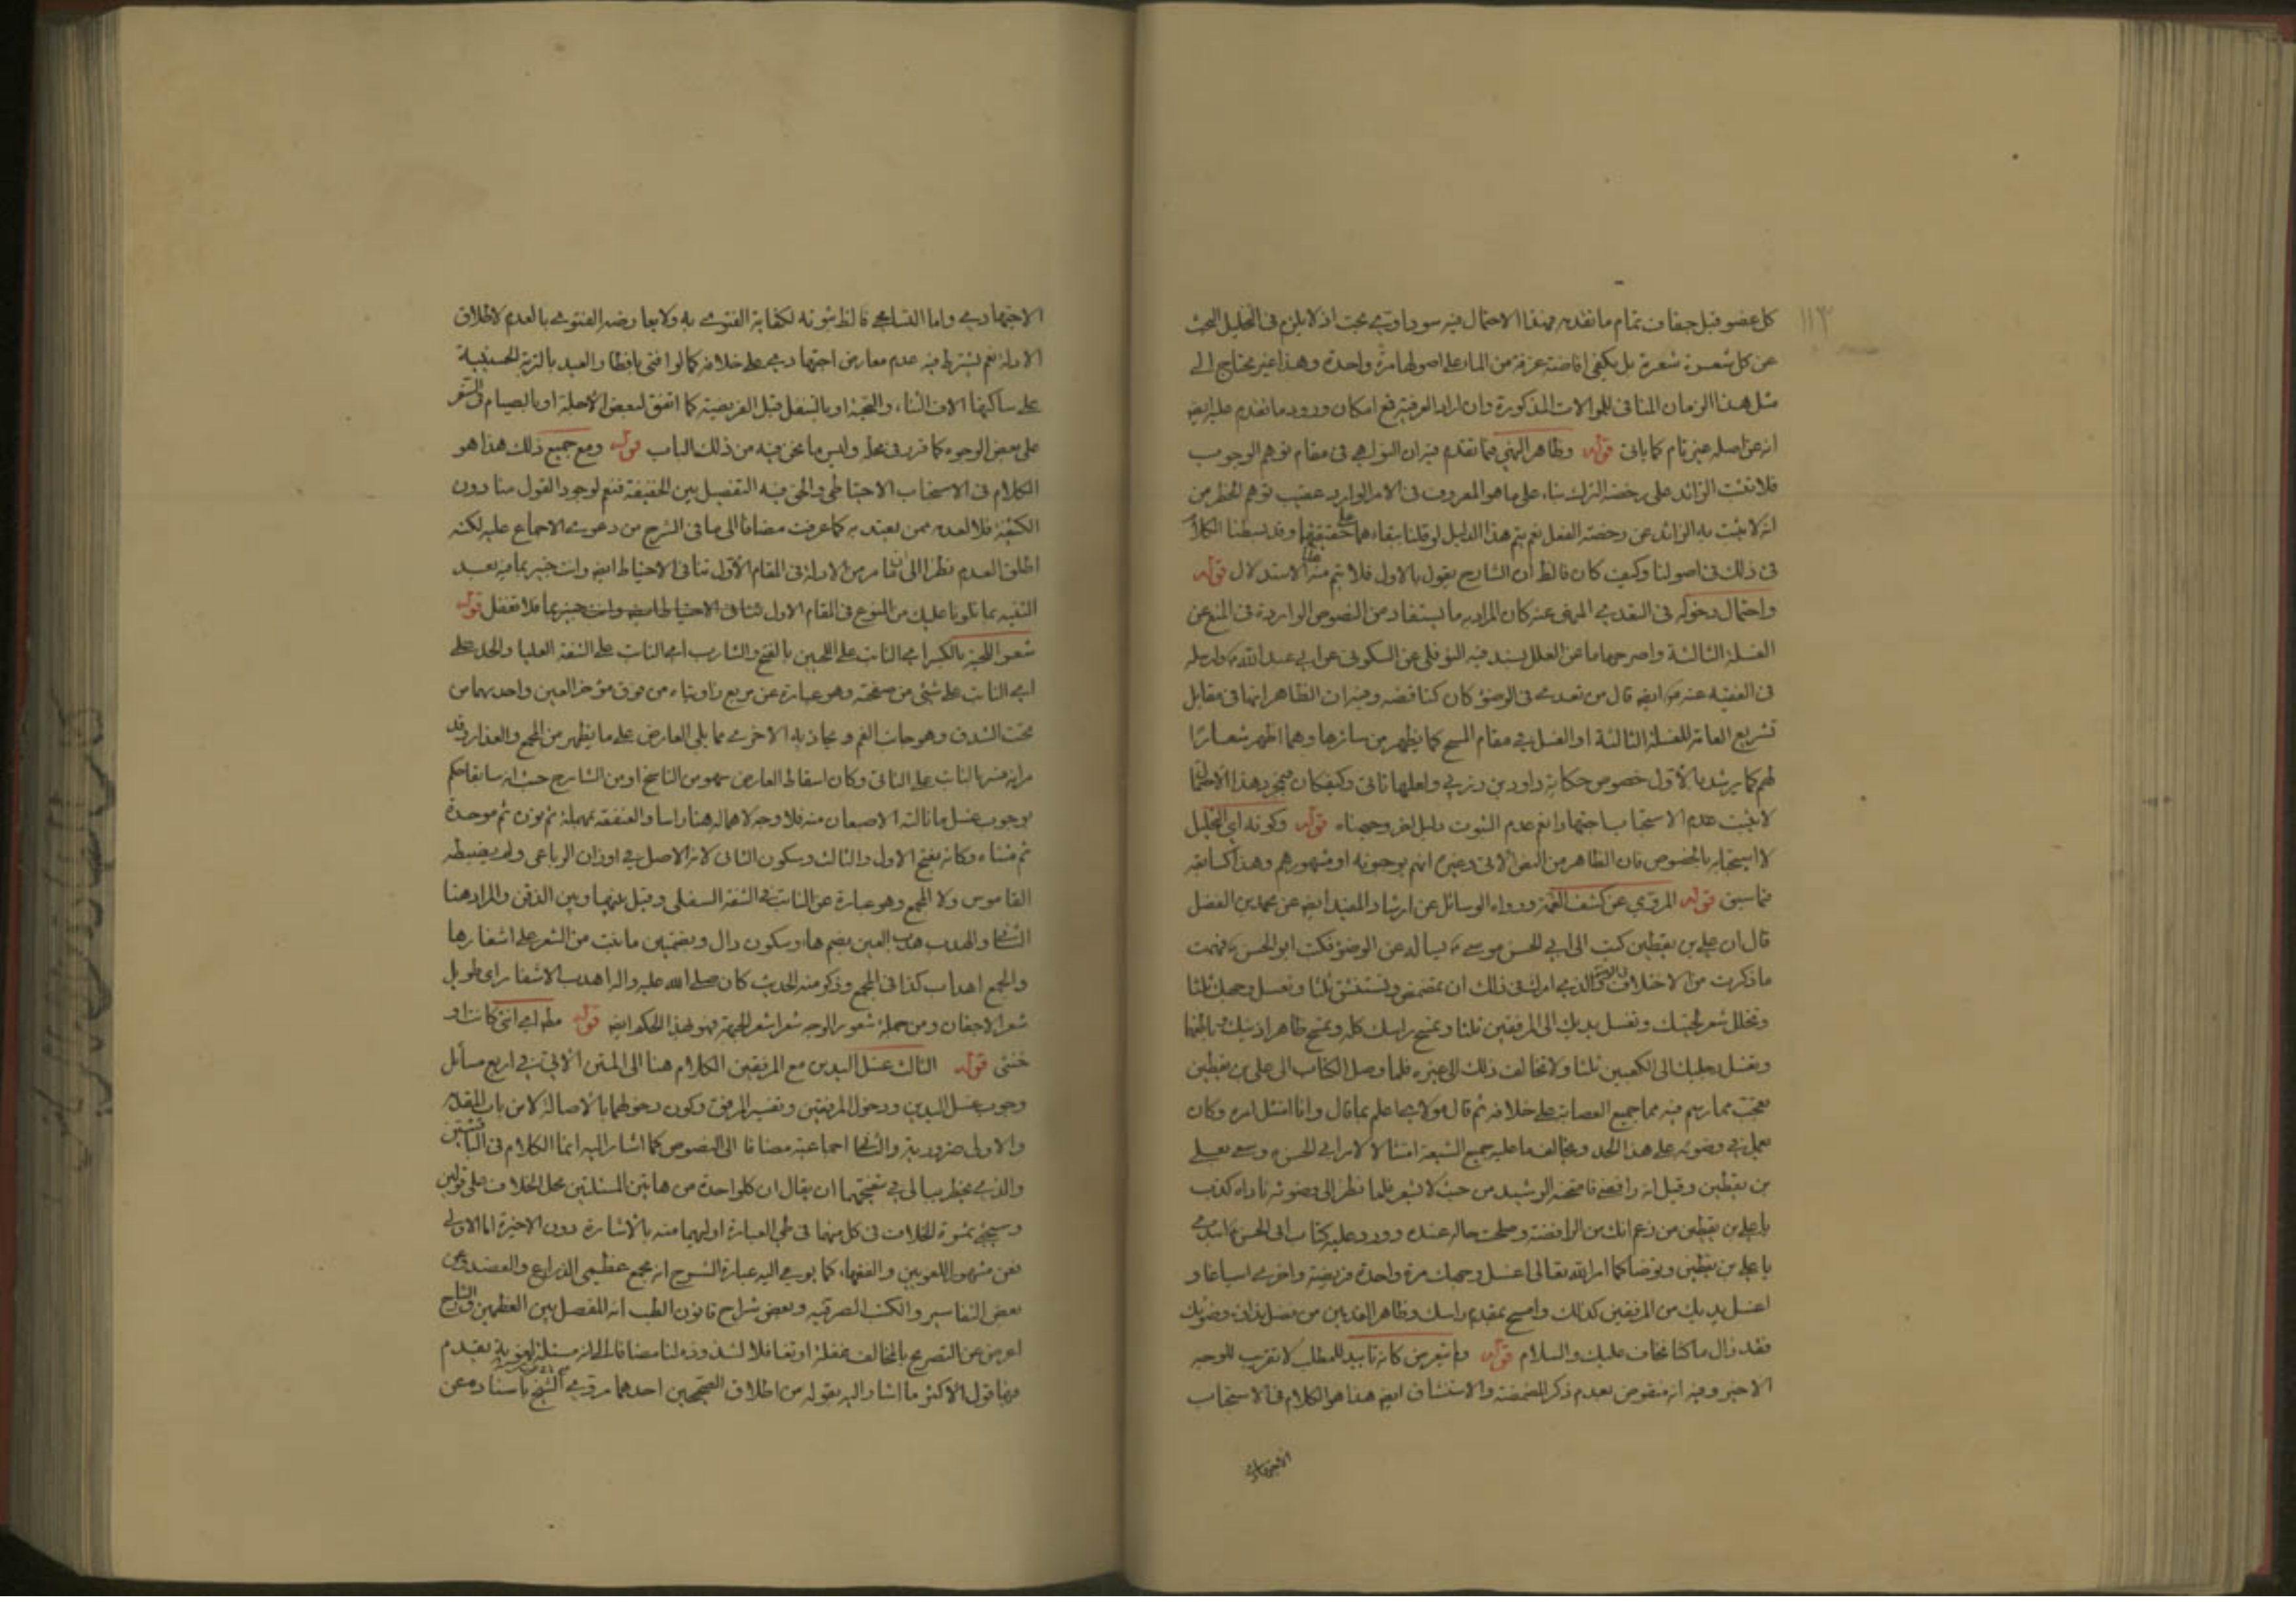 ١١٣
كل عضو قبل جفاف تمام ما تقدمه فهذا الاحتمال فيه سوداوي بحت اذ لا يلزم فى التخليل البحث
عن كل شعرة شعرة بل يكفى افاضة غرفة من الماء على اصولها مرة واحدة وهذا غير محتاج الى
مثل هذا الزمان المنافى للموالات المذكورة وان اراد العرفية فمع امكان ورود ما تقدم عليه ايضا
انه عن اصله غير تام كما ياتى قوله وظاهر النهى فيما تقدم فيه ان النواهى فى مقام توهم الوجوب
فلا تثبت الزائد على رخصة الترك بناء على ما هو المعروف فى الامر الوارد عقيب توهم الحظر من
انه لا يثبت به الزائد عن رخصة الفعل نعم يتم هذا الدليل لو قلنا ببقاءهما على حقيقتهما وقد بسطنا الكلام
فى ذلك فى اصولنا وكيف كان فالظ ان الشارح يقول بالاول فلا يتم منه الاستدلال قوله
واحتمال دخوله فى التعدى المنهى عنه كان المراد به ما يستفاد من النصوص الواردة فى المنع عن
الغسلة الثالثة واصرحها ما عن العلل بسند فيه النوفلى عن السكونى عن ابى عبد الله وارسله
فى الفقيه عنه ايضا قال من تعدى فى الوضوء كان كناقضه وفيه ان الظاهر انها فى مقابل
تشريع العامة للغسلة الثالثة او الغسل فى مقام المسح كما يظهر من سائرها وهما اظهر شعارا
لهم كما يرشد بالاول خصوص حكاية داود بن زربى ولعلها تاتى وكيف كان فمجرد هذا الاحتمال
لا يثبت عدم الاستحباب اجتهادا نعم عدم الثبوت دليل اخر وجيهناه قوله وكونه اى التخليل
لا استحبابه بالخصوص فان الظاهر من النص الاتى وغيره انهم يوجبونه او مشهورهم وهذا كسابقه
فيما سبق قوله المروى عن كشف الغمة ورواه الوسائل عن ارشاد المفيد ايضا عن محمد بن الفضل
قال ان على بن يقطين كتب الى ابى الحسن موسى يساله عن الوضوء فكتب ابو الحسن فهمت
ما ذكرت من الاختلاف فى الوضوء والذى امرك فى ذلك ان تمضمض وتستنشق ثلثا وتغسل وجهك ثلثا
وتخلل شعر لحيتك وتغسل يديك الى المرفقين ثلثا وتمسح راسك كله وتمسح ظاهر اذنيك وباطنهما
وتغسل رجليك الى الكعبين ثلثا ولا تخالف ذلك الى غيره فلما وصل الكتاب الى على بن يقطين
تعجب مما رسم فيه مما جميع العصابة على خلافه ثم قال مولاى اعلم بما قال وانا امتثل امره وكان
يعمل فى وضوئه على هذا الحد ويخالف ما عليه جميع الشيعة امتثالا لامر ابى الحسن وسعى بعلى
بن يقطين وقيل انه رافضى فامتحنه الرشيد من حيث لا يشعر فلما نظر الى وضوئه ناداه كذب
يا على بن يقطين من زعم انك من الرافضة وصلحت حاله عنده وورد عليه كتاب ابى الحسن ابتدء
يا على بن يقطين وتوضا كما امر الله تعالى اغسل وجهك مرة واحدة فريضة واخرى اسباغا و
اغسل يديك من المرفقين كذلك وامسح بمقدم راسك وظاهر القدمين من فضل نداوة وضوئك
فقد زال ما كنا نخاف عليك والسلام قوله ولم يتعرض كانه تاييد للمطلب لا تقريب للوجه
الاخير وفيه انه منقوض بعدم ذكر المضمضة والاستنشاق ايضا هذا هو الكلام فى الاستحباب
الاجتهادى
الاجتهادى واما التسامحى فالظ ثبوته لكفاية الفتوى به ولا يعارضه الفتوى بالعدم لاطلاق
الادلة نعم يشترط فيه عدم معارض اجتهادى على خلافه كما لو افتى بافطار العيد بالتربة الحسينية
على ساكنها الاف الثناء والتحية او بالتنفل قبل الفريضة كما اتفق لبعض الاجلة او بالصيام فى السفر
على بعض الوجوه كما قرر فى محله وليس ما نحن فيه من ذلك الباب قوله ومع جميع ذلك هذا هو
الكلام فى الاستحباب الاحتياطى والحق فيه التفصيل بين الخفيفة فنعم لوجود القول منا دون
الكثيفة فلا لعدمه ممن يعتد به كما عرفت مضافا الى ما فى الشرح من دعوى الاجماع عليه لكنه
اطلق العدم نظرا الى ان ما مر من الادلة فى المقام الاول تنافى الاحتياط ايضا وانت خبير بما فيه بعد
التنبيه بما تلونا عليك من المنوع فى المقام الاول تنافى الاحتياط ايضا وانت خبير بما فلا تغفل قوله
شعر اللحية بالكسر اى النابت على اللحيين بالفتح والشارب اى النابت على الشفة العليا والخد على
اى النابت على شىء من صفحته وهو عبارة عن مربع زاويتاه من فوق مؤخر العين واحديهما من
تحت الشدق وهو جانب الفم ويحاذيه الاخرى مما يلى العارض على ما يظهر من المجمع والعذار وقد
مر انه فسر بالنابت على الثانى وكان اسقاط العارض سهو من الناسخ او من الشارح حيث انه سابقا حكم
بوجوب غسل ما نالته الاصبعان منه فلا وجه لاهماله هنا راسا والعنفقة بمهملة ثم نون ثم موحدة
ثم مثناة وكانه بفتح الاول والثالث وسكون الثانى لانه الاصل فى اوزان الرباعى ولم يضبطه
القاموس ولا المجمع وهو عبارة عن النابت فى الشفة السفلى وقيل بينها وبين الذقن والمراد هنا
الشفا والهدب هدب العين بضم هاء وسكون دال وبضمتين ما نبت من الشعر على اشفارها
والجمع اهداب كذا فى المجمع وذكر منه الحديث كان صلى الله عليه واله اهدب الاشفار اى طويل
شعر الاجفان ومن جملة شعور الوجه شعر اشعر الجبهة فهو بهذا الحكم ايضا قوله مطه اى انثى كانت او
خنثى قوله الثالث غسل اليدين مع المرفقين الكلام هنا الى المتن الاتى فى اربع مسائل
وجوب غسل اليدين ودخول المرفقين وتفسير المرفق وكون دخولهما بالاصالة لا من باب المقدمة
والاولى ضرورية والثانية اجماعية مضافا الى النصوص كما اشار اليه انما الكلام فى الباقيتين
والذى يخطر ببالى فى تنقيحهما ان يقال ان كلا واحدة من هاتين المسئلتين محل الخلاف على قولين
وسيجئ ثمرة الخلاف فى كل منهما فى طى العبارة اوليهما منه بالاشارة دون الاخيرة اما الاولى
فعن مشهور اللغويين والفقهاء كما يومى اليه عبارة الشرح انه مجمع عظمى الذراع والعضد وعن
بعض التفاسير والكتب الصرفيه وبعض شراح قانون الطب انه المفصل بين العظمين والشارح
اعرض عن التصريح بالمخالف غفلة او تغافلا لشذوذه لنا مضافا الى انه مسئلة لغوية يقدم
فيها قول الاكثر ما اشار اليه بقوله من اطلاق الصحيحين احدهما مروى الشيخ باسناده عن